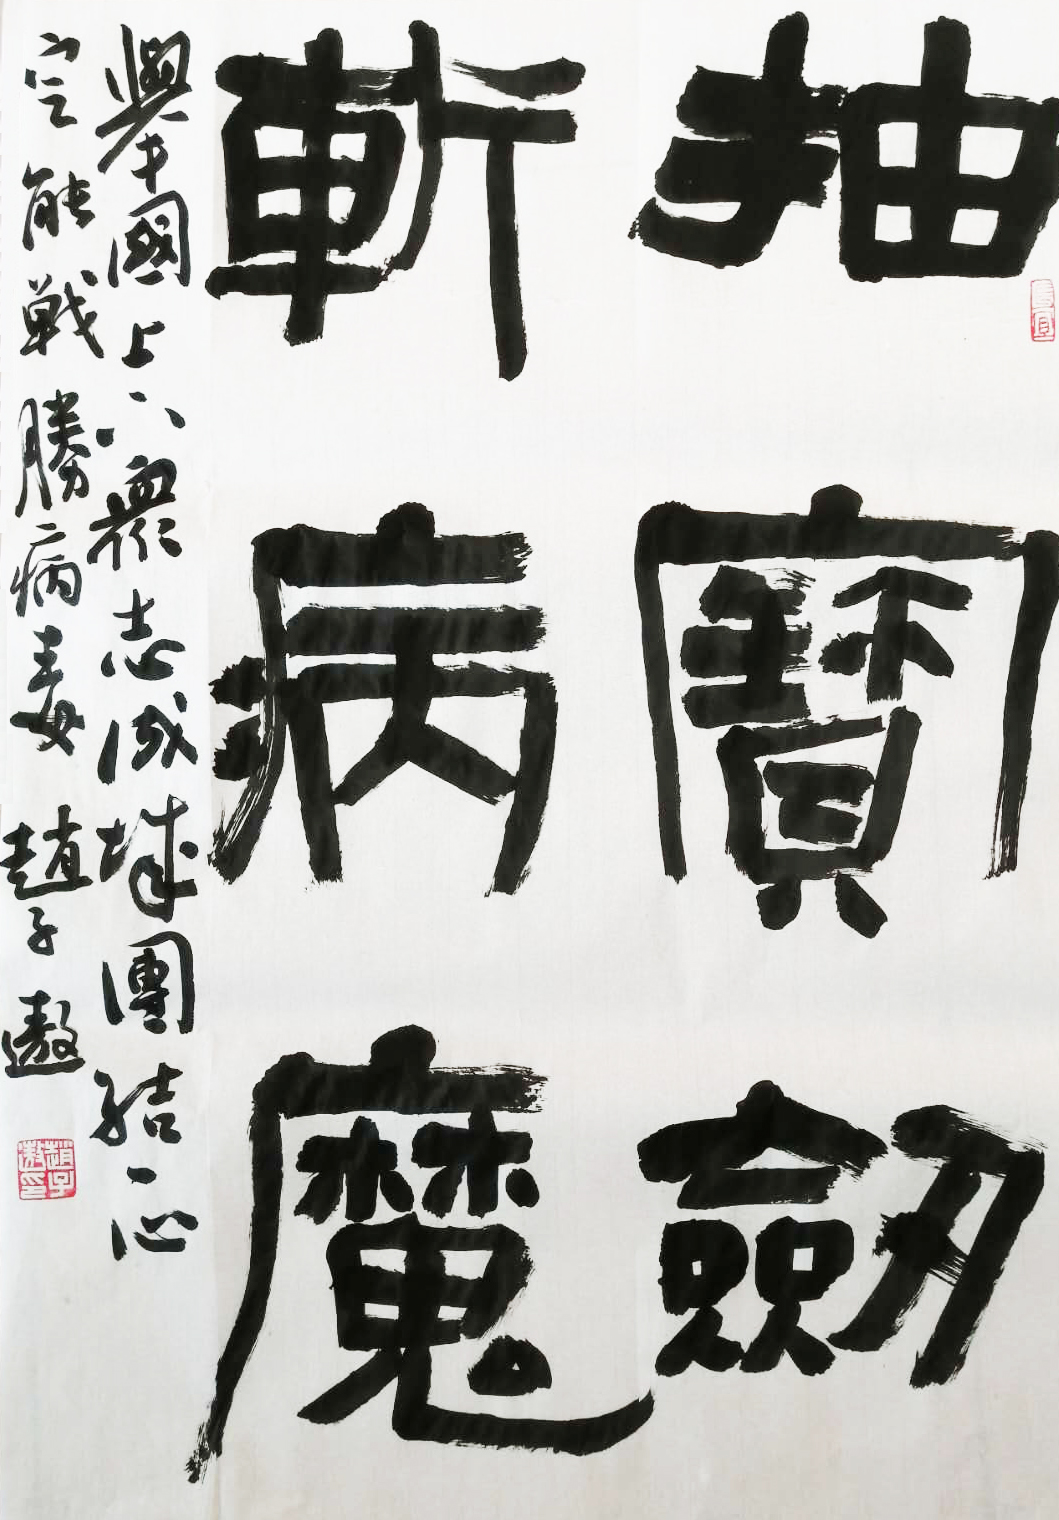 抽寶劍
斬病魔
舉國上下衆志成城團結一心
定能戰勝病毒 趙子遨
趙子遨印